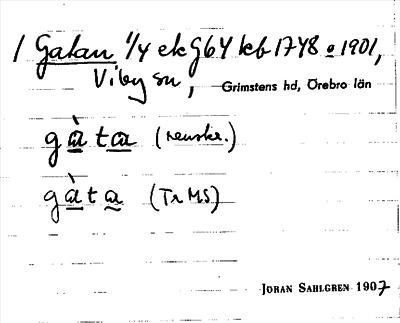 1 Gatan 1/4 ek G64 kb 1748 o 1901,
Viby sn, Grimstens hd, Örebro län
gàta (renskr.)
gàta (Tr MS)
JÖRAN SAHLGREN 1907